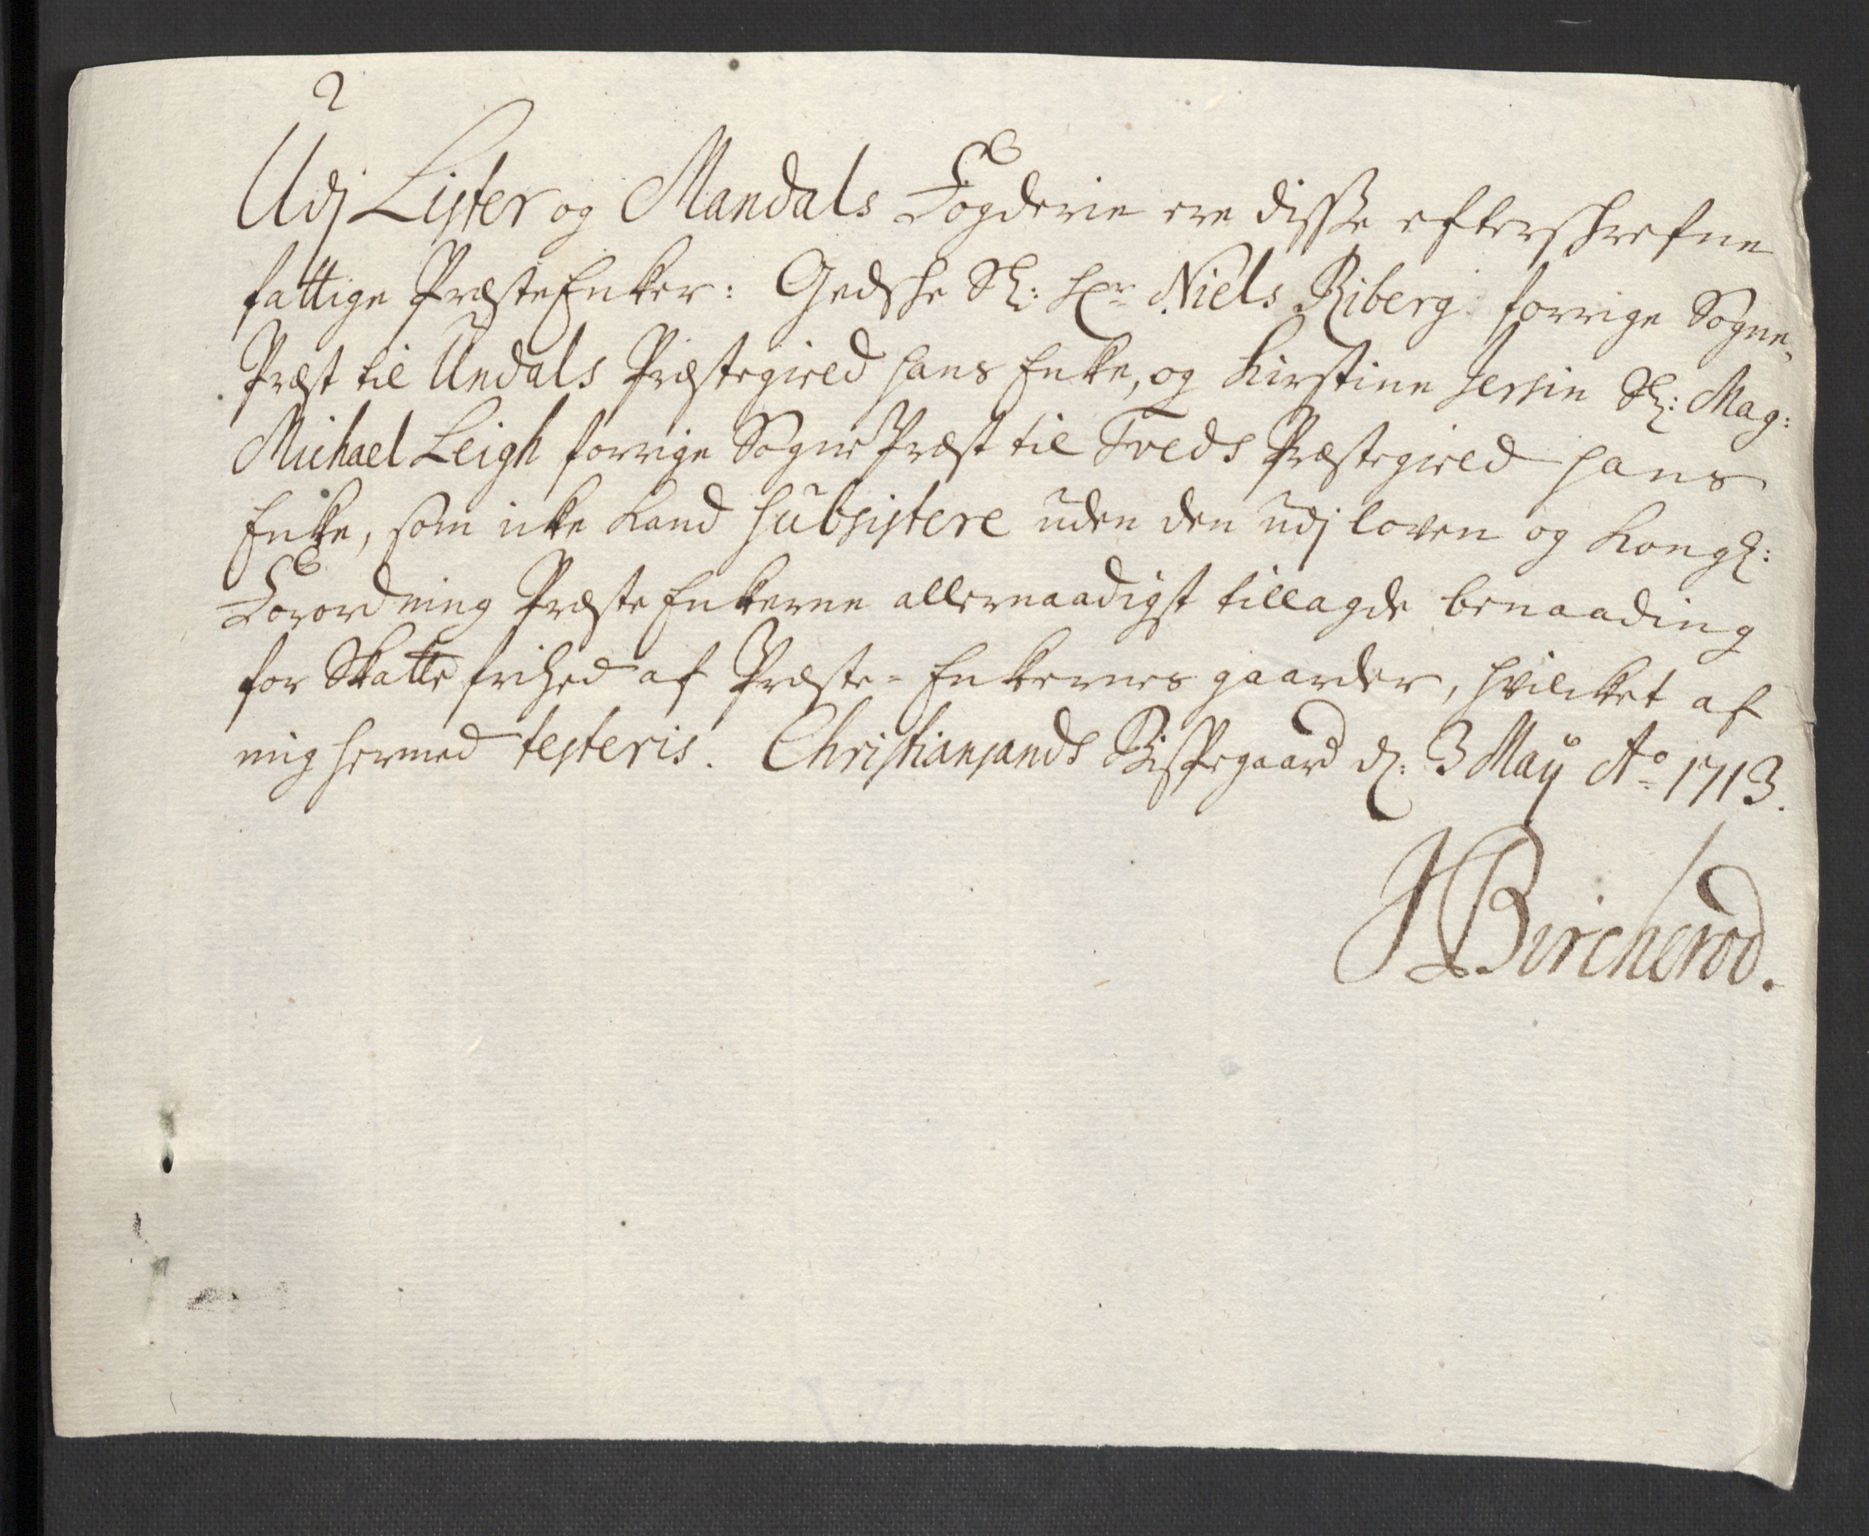 Udj Lister og Mandals Fogderie ere disse efterschrefne
fattige PræsteEnker: Gedsche Sl: Hr Niels Riberg forrige Sogne-
Præst til Undals Præstegield hans Enke, og Kirstine Jersin Sl: Mag:
Michael Leigh forrige Sogne Præst til Tveds Præstegield hans
Enke, som icke kand subsistere uden den udj loven og Kongl:
Forordning Præste Enkerne allernaadigst tillagde benaading
for Skatte frihed af Præste-Enkernes gaarder, hvilcket af
mig hermed testeris. Christiansands Bispegaard d: 3 Maij Ao 1713.
JBircherod.